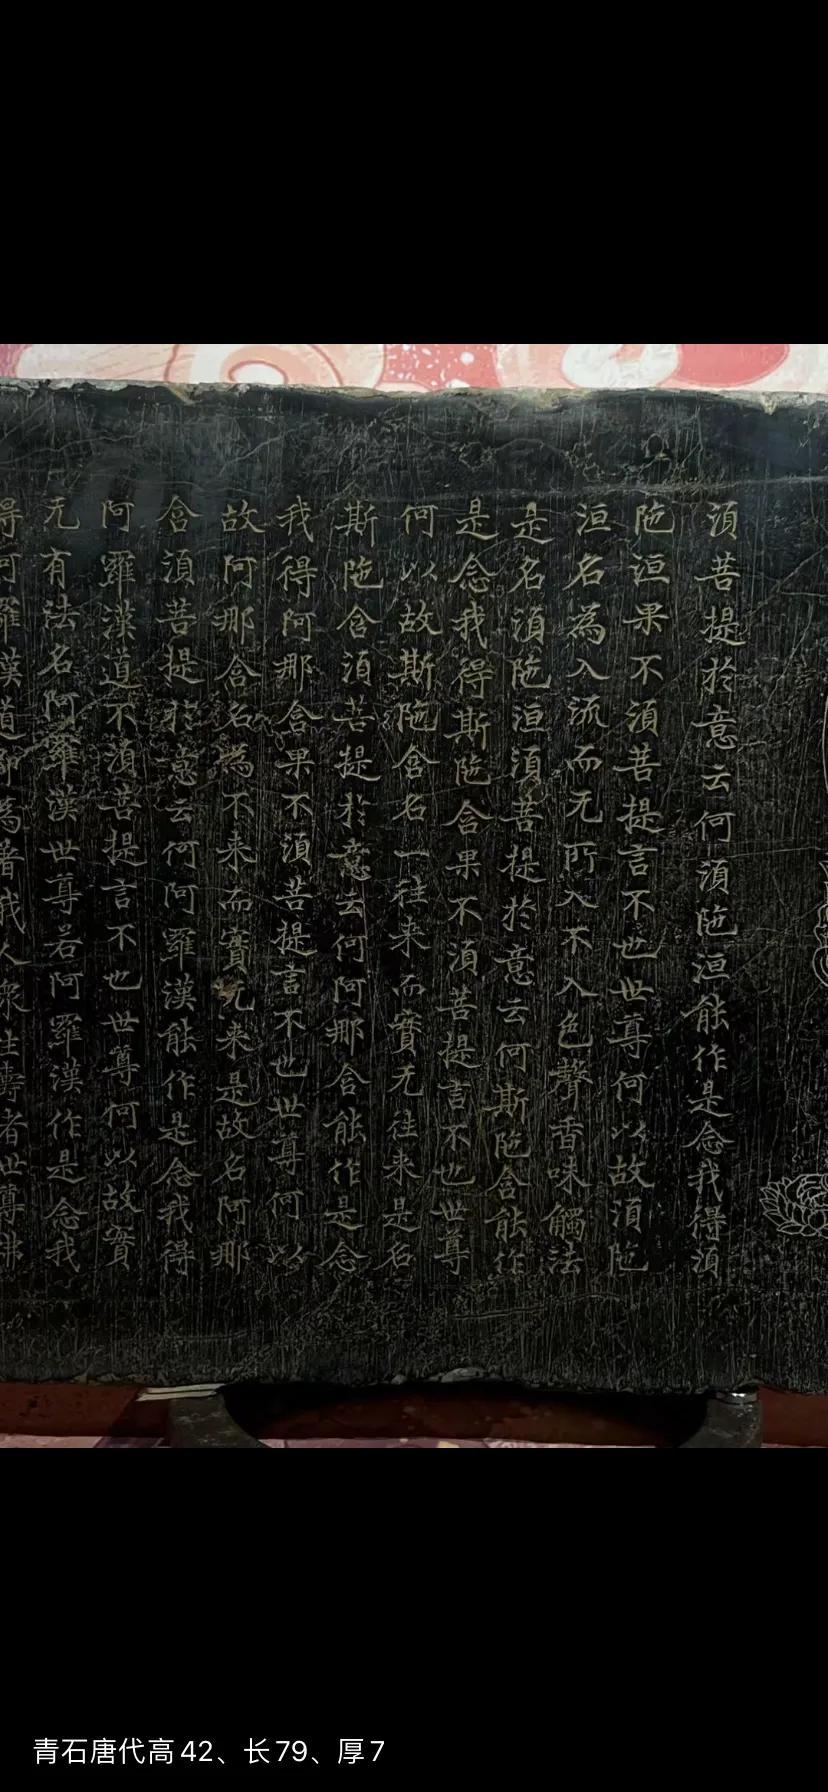 須菩提於意云何須陁洹能作是念我得須
陁洹果不須菩提言不也世尊何以故須陁
洹名為入流而无所入不入色聲香味觸法
是名須陁洹須菩提於意云何斯陁含能作
是念我得斯陁含果不須菩提言不也世尊
何以故斯陁含名一往来而實无往来是名
斯陁含須菩提於意云何阿那含能作是念
我得阿那含果不須菩提言不也世尊何以
故阿那含名為不来而實无来是故名阿那
含須菩提於意云何阿羅漢能作是念我得
阿羅漢道不須菩提言不也世尊何以故實
无有法名阿羅漢世尊若阿羅漢作是念我
得阿羅漢道即為著我人衆生壽者世尊佛
青石唐代高42、长79、厚7